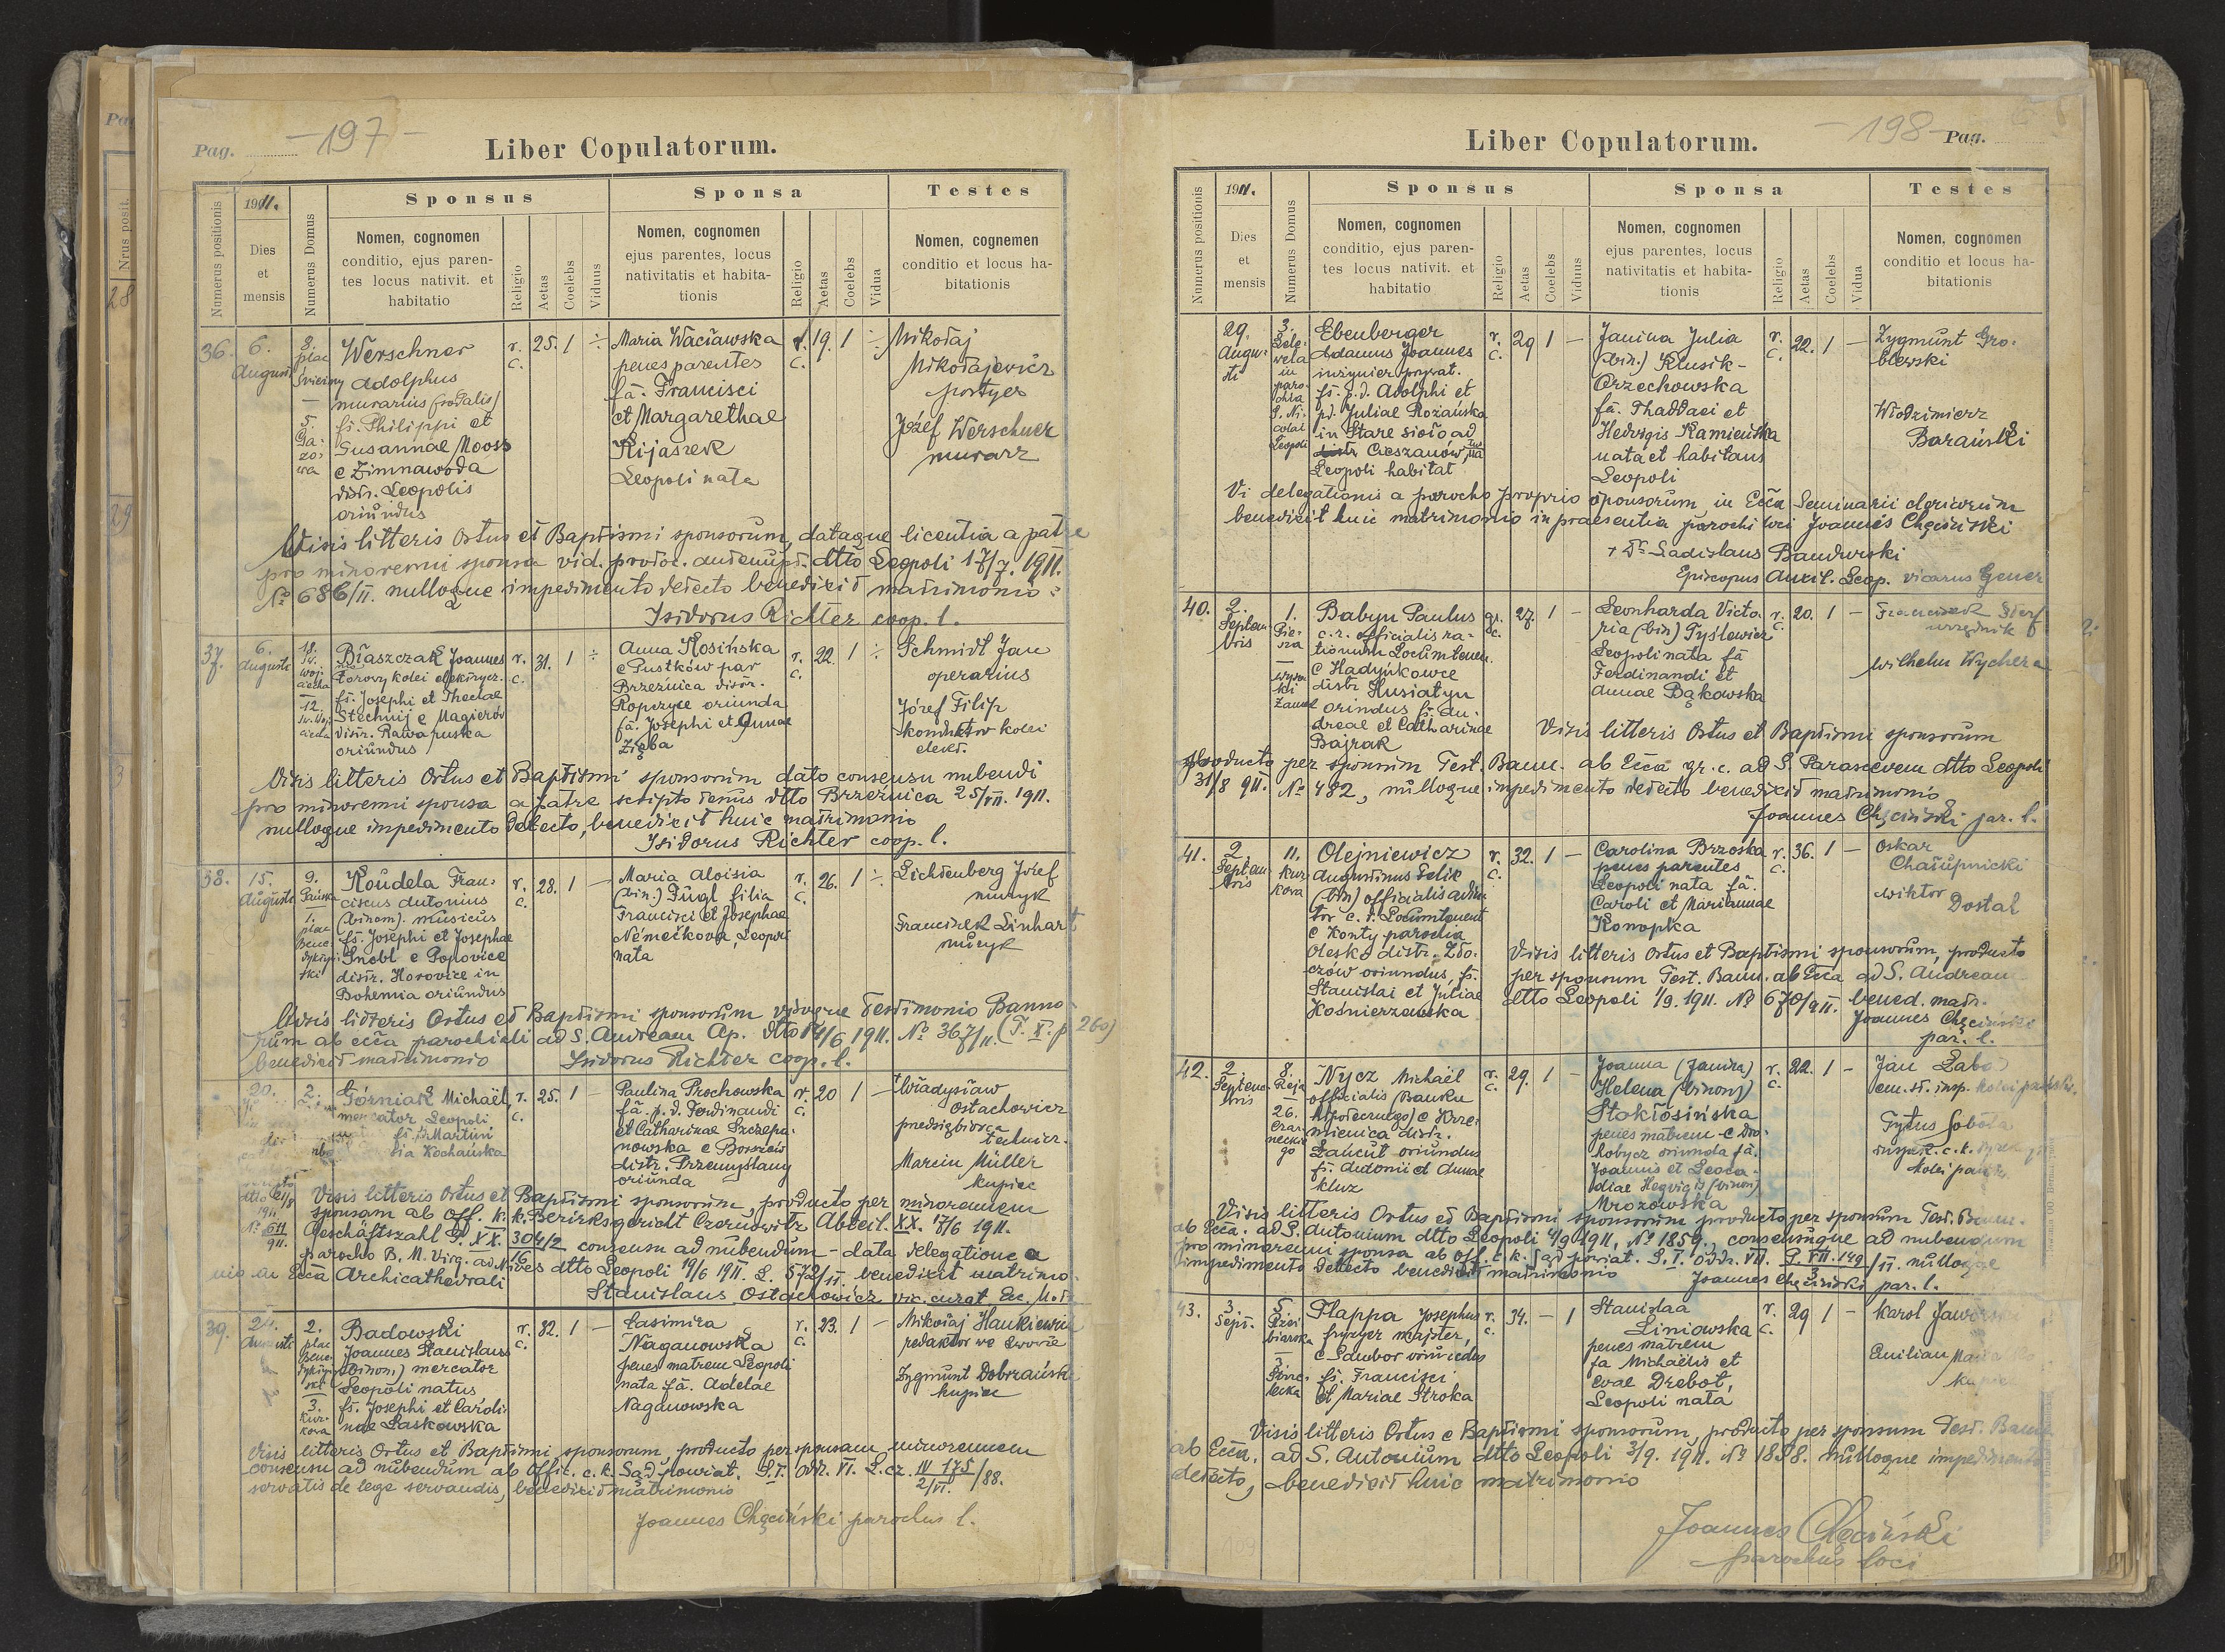 Pag. -197-
Liber Copulatorum.
Numerus positionis
1911.
Dies
et
mensis
Numerus Domus
Sponsus
Nomen, cognomen
conditio, ejus paren-
tes locus nativit. et
habitatio
Religio
Aetas
Coelebs
Viduus
Sponsa
Nomen, cognomen
ejus parentes, locus
nativitatis et habita-
tionis
Religio
Aetas
Coelebs
Vidua
Testes
Nomen, cognemen
conditio et locus ha-
bitationis
36.
6.
Augusti
3.
plac
5.
Werschner
Adolphus
murarius (sodalis)
fi. Philippi et
Susannae Mooss
e Zimnawoda
distr. Leopolis
oriundus
r.
c.
25.
1
Maria Wacławska
penes parentes
fa. Francisci
et Margarethae
Kijaszek
Leopoli nata
r.
c.
19.
1
Mikołaj
Mikołajewicz
portyer
Józef Werschner
murarz
Visis litteris Ortus et Baptismi sponsorum, dataque licentia a patre
pro minorenni sponsa vid. protoc. dtto Leopoli 17/7. 1911.
№ 686/11. nulloque impedimento detecto benedixit matrimonio
Isidorus Richter coop. l.
37.
6.
Augusti
18.
Św.
Woj-
ciecha
12.
Błaszczak Joannes
torowy kolei elektrycz.
fi. Josephi et Theclae
Stechnij e Magierów
distr. Rawa ruska
oriundus
r.
c.
31.
1
Anna Kosińska
e Pustków par
Brzeźnica distr.
Ropczyce oriunda
fa. Josephi et Annae
Zięba
r.
c.
22.
1
Schmidt Jan
operarius
Józef Filip
konduktor kolei
elekt.
Visis litteris Ortus et Baptismi sponsorum dato consensu nubendi
pro minorenni sponsa a patre scripto tenus dtto Brzeźnica 25/VII. 1911.
nulloque impedimento detecto, benedixit huic matrimonio
Isidorus Richter coop. l.
38.
15.
Augusti
9.
Pańska
1.
plac
Bene-
dykty-
ński
Koudela Fran-
ciscus Antonius
(binom). musicus
fi. Josephi et Josephae
Snobl e Popovice
distr. Horovice in
Bohemia oriundus
r.
c.
28.
1
Maria Aloisia
(bin.) Fügl filia
Francisci et Josephae
Němečkova, Leopoli
nata
r.
c.
26.
1
Lichtenberg Józef
muzyk
Franciszek Linhart
muzyk
Visis litteris Ortus et Baptismi sponsorum visoque Testimonio Banno-
rum ab ecca parochiali ad S. Andream Ap. dtto 14/6 1911. № 367/11. (T. X. p 260)
benedixit matrimonio Isidorus Richter coop. l.
20.
2.
Górniak Michaël
mercator Leopoli
fi. Martini
Kochańska
r.
c.
25.
1
Paulina Prochowska
fa. p. d. Ferdinandi
et Catharinae Szczepa-
nowska e Borszów
distr. Przemyślany
oriunda
r.
c.
20
1
Władysław
Ostachowicz
przedsiębiorca
technicz.
Marcin Müller
kupiec
dtto 21/8
1911.
№ 611
911.
Visis litteris Ortus et Baptismi sponsorum, producto per minorennem
sponsam ab Off. k. k. Bezirksgericht Czernowitz Abteil. XX. 17/6 1911.
Geschäftszahl P. XX. 304/2 consensu ad nubendum - data delegatione a
16
parocho B. M. Virg. ad Nives dtto Leopoli 19/6 1911. L. 572/11. benedixit matrimo-
nio in Ecca Archicathedrali
Stanislaus Ostachowicz vic. curat Ec. Metr.
39.
24.
Augusti
2.
plac
Bene-
dykty-
ński
3.
Kur-
kowa
Badowski
Joannes Stanislaus
(binom.) mercator
Leopoli natus
fi. Josephi et Caroli-
nae Laskowska
r.
c.
32.
1
Casimira
Naganowska
penes matrem Leopoli
nata fa. Adelae
Naganowska
r.
c.
23.
1
Mikołaj Hankiewicz
redaktor we Lwowie
Zygmunt Dobrzański
kupiec
Visis litteris Ortus et Baptismi sponsorum, producto per sponsam minorennem
consensu ad nubendum ab Offic. c. k. Sąd powiat. S. I. odz. VI. L. cz. IV 175
2/VI. /88.
servatis de lege servandis, benedixit matrimonio
Joannes Chęciński parochus l.
-198- Pag.
Liber Copulatorum.
Numerus positionis
1911.
Dies
et
mensis
Numerus Domus
Sponsus
Nomen, cognomen
conditio, ejus paren-
tes locus nativit. et
habitatio
Religio
Aetas
Coelebs
Viduus
Sponsa
Nomen, cognomen
ejus parentes, locus
nativitatis et habita-
tionis
Religio
Aetas
Coelebs
Vidua
Testes
Nomen, cognomen
conditio et locus ha-
bitationis
29.
Augu-
sti
3.
in
paro-
chia
S. Ni-
colai
Leopoli
Ebenberger
Adamus Joannes
inżynier prywat.
fi. p. d. Adolphi et
pd. Juliae Rozańska
in Stare sioło ad
Cieszanów,
Leopoli habitat
r.
c.
29
1
Janina Julia
(bin.) Klusik-
Orzechowska
fa. Thaddaei et
Hedvigis Kamieńska
nata et habitans
Leopoli
r.
c.
22.
1
Zygmunt Gro-
blewski
Włodzimierz
Barański
Vi delegationis a parocho proprio sponsorum, in Ecca Seminarii clericorum
benedixit huic matrimonio in praesentia parochi loci Joannis Chęciński
+ Dr Ladislaus Bandurski
Episcopus Auxil. Leop. vicarius Gener
40.
2.
Septem-
bris
1.
Pie-
wyso-
ki
Zamek
Babyn Paulus
c. r. officialis ra-
tionum Locumtenen.
e Hadyńkowce
distr Husiatyn
oriundus fi. An-
dreae et Catharinae
Bajrak
gr.
c.
27.
1
Leonharda Victo-
ria (bin) Tyślewicz
Leopoli nata fa
Ferdinandi et
Annae Bąkowska
r.
c.
20.
1
Franciszek
urzędnik
Wilhelm Wychera
Visis litteris Ortus et Baptismi sponsorum
producto per sponsum Test. Bann. ab Ecca gr. c. ad S. Parascevem dtto Leopoli
31/8 911. № 482, nulloque impedimento detecto benedixit matrimonio
Joannes Chęciński par. l.
41.
2.
Septem-
bris
11.
Kur-
kowa
Olejniewicz
Augustinus Felix
(bin) officialis
c. r. Locumtenent
e Konty parochia
Olesko distr. Zło-
czów oriundus, fi.
Stanislai et Juliae
Kośnierzewska
r.
c.
32.
1
Carolina Brzoska
penes parentes
Leopoli nata fa.
Caroli et Mariannae
Konopka
r.
c.
36.
1
Oskar
Chałupnicki
Wiktor
Dostal
Visis litteris Ortus et Baptismi sponsorum, producto
per sponsum Test. Bann. ab Ecca ad S. Andream
dtto Leopoli 1/9. 1911. № 670/911. bened. matr.
Joannes Chęciński
par. l.
42.
2.
Septem-
bris
8.
Reja
26.
Czar-
neckie-
go
Nycz Michaël
officialis (Banku
hipotecznego) e Krze-
mienica distr.
Łańcut oriundus
fi. Antonii et Annae
Kluz
r.
c.
29.
1
Joanna (Janina)
Helena (binom)
Stokłosińska
penes matrem e Dro-
hobycz oriunda fa.
Joannis et Leoca-
diae Hegvigis (binom)
Mrozowska
r.
c.
22.
1
Jan Łaba
em. st. insp. kolei państw.
Tytus Sobota
inspek. c. k.
kolei państ.
Visis litteris Ortus et Baptismi sponsorum producto per sponsum Test. Bann.
ab Ecca. ad S. Antonium dtto Leopoli 1/9 1911, № 1859., consensuque ad nubendum
pro minorenni sponsa ab Off. c. k. Sąd powiat. S. I. oddz. VII. P. VII. 149/11. nulloque
3
impedimento detecto benedixit matrimonio Joannes Chęciński par. l.
43.
3.
Sept.
5.
3.
Plappa Josephus
fryzyer majster,
e Sambor oriundus
fi. Francisci
et Mariae Stroka
r.
c.
34.
1
Stanislaa
Liniowska
penes matrem
fa Michaëlis et
Evae Drebot,
Leopoli nata
r.
c.
29
1
Karol
Emilian
Visis litteris Ortus e Baptismi sponsorum, producto per sponsum Test. Bann.
ab Ecca. ad S. Antonium dtto Leopoli 3/9. 1911. № 1858. nulloque impedimento
detecto, benedixit huic matrimonio
Joannes Chęciński
parochus loci